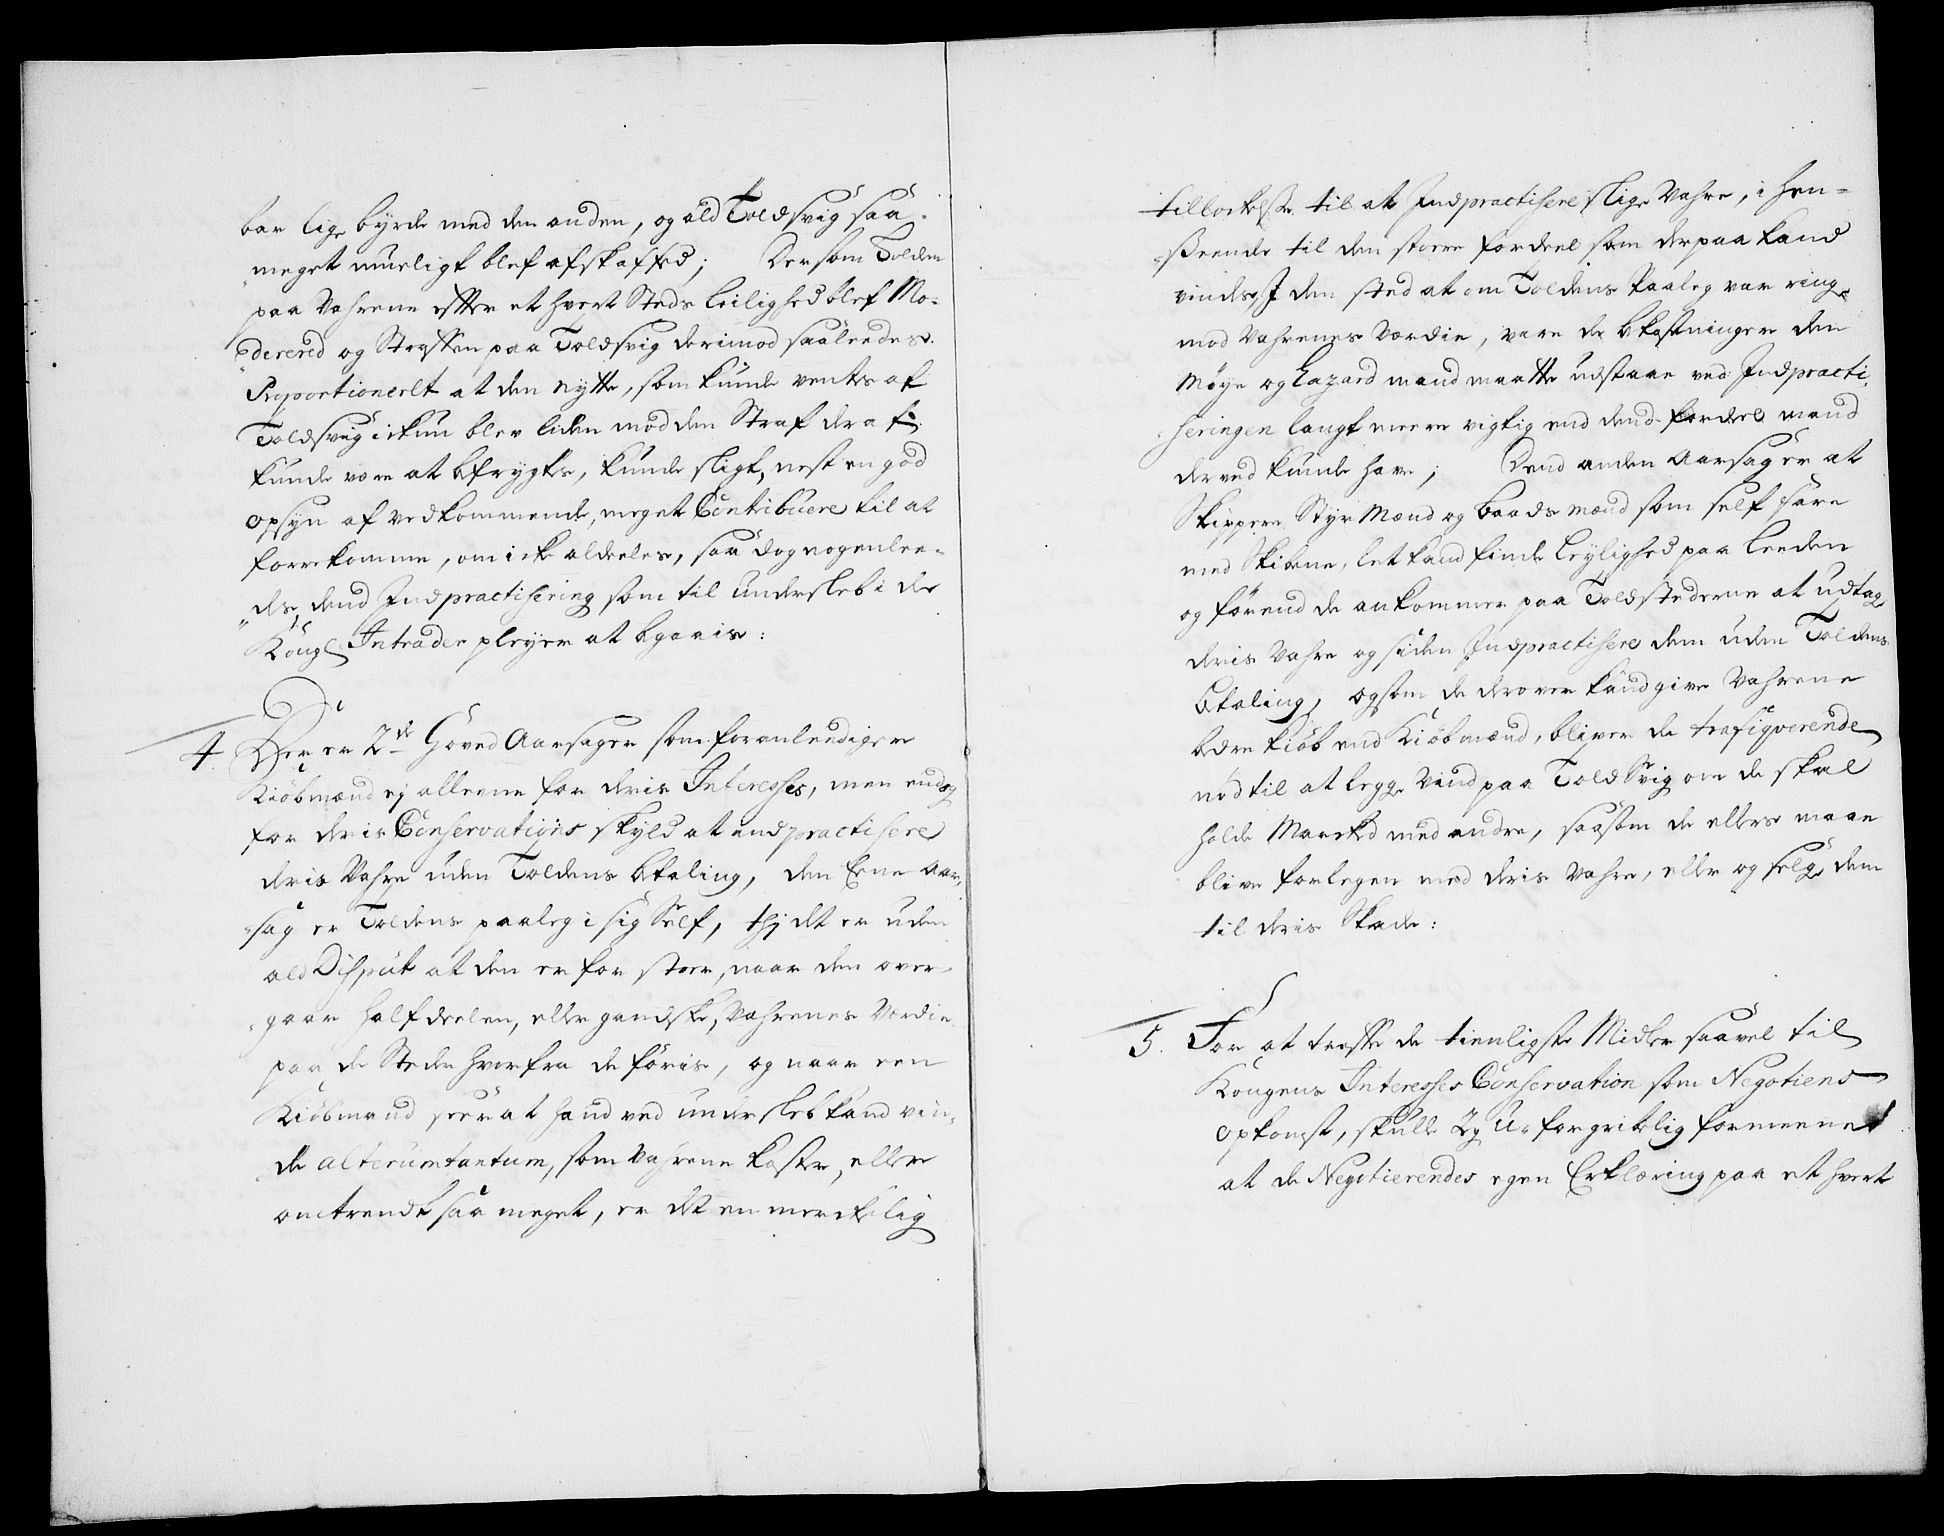 bær lige byrde med den anden, og ald Toldsvig saa
meget mueligt blef afskaffed; Dersom Tolden
paa Vahrene efter et hvert Steds leilighed blef Mo-
dererd og Straffen paa Toldsvig derimod saaleedes
Proportionerlt at den nytte, som kunde ventes af
Toldsvig ickun blev liden mod den Straf der af
kunde være at befrygte, kunde sligt, nest en god
opsyn af vedkommende, meget Contribuere til at
forrekomme, om icke aldeeles, saa dog nogenlee-
des, dend Indpractisering som til undersleb i de
Kongl Intrader pleyer at begaais:
4. Der er 2de Hoved Aarsager som foranleediger
Kiøbmænd ej alleene for deris Interesses, men endog
for deris Conservations skyld at indpractisere
deris Vahre uden Toldens betaling, den Eene Aar-
sag er Toldens paaleg i sig Self, thj det er uden
ald Disput at den er for stoer, naar den over-
gaar halfdeelen, eller gandske, Vahrenes Værdie
paa de Steder hvorfra de føris, og naar een
Kiøbmand seer at hand ved undersleb kand vin-
de alterumtantum, som Vahrene koster, eller
omtrendt saa meget, er det en merckelig
tillockelse til at Indpractisere slige Vahre, i hen-
seende til den store fordeel som derpaa kand
vindes, I den sted at om Toldens Paaleg var ringe
mod Vahrenes Værdie, vare de bekostninger den
Møye og Hazard mand maatte udstaae ved Indpracti-
seringen langt meere vigtig end dend fordeel mand
derved kunde have; Dend anden Aarsag er at
Skippere Styr Mænd og baads mænd som self fare
med Skibene, let kand finde leylighed paa leeden
og førend de ankommer paa Toldstederne at udtage
deris Vahre og siden Indpractisere dem uden Toldens
betaling, og som de derover kand give Vahrene
bedre kiøb end Kiøbmænd, bliver de trafiqverende
nød til at legge Vind paa Told Svig om de skal
holde Marcked med andre, saasom de ellers maae
blive forlegen med deris Vahre, eller og selge dem
til deris Skade:
5. For at treffe de tienligste Midler saavel til
Kongens Interesses Conservation som Negotiens
opkomst, skulle Jeg U-forgribelig formeene
at de Negotierendes egen Erklæring paa et hvert